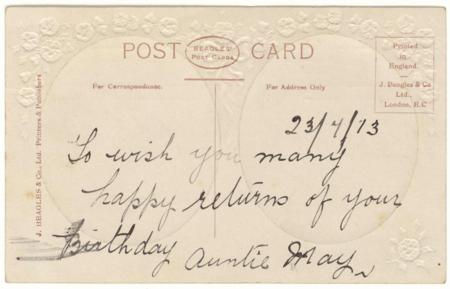 POST CARD
BEAGLES'
POST CARDS
Printed
in
England.
J. Beagles & Co
Ltd.,
London, E.C
For Correspondence.
For Address Only
J. BEAGLES & Co., Ltd. Printers & Publishers
23/4/13
To wish you many
happy returns of your
Birthday Auntie May